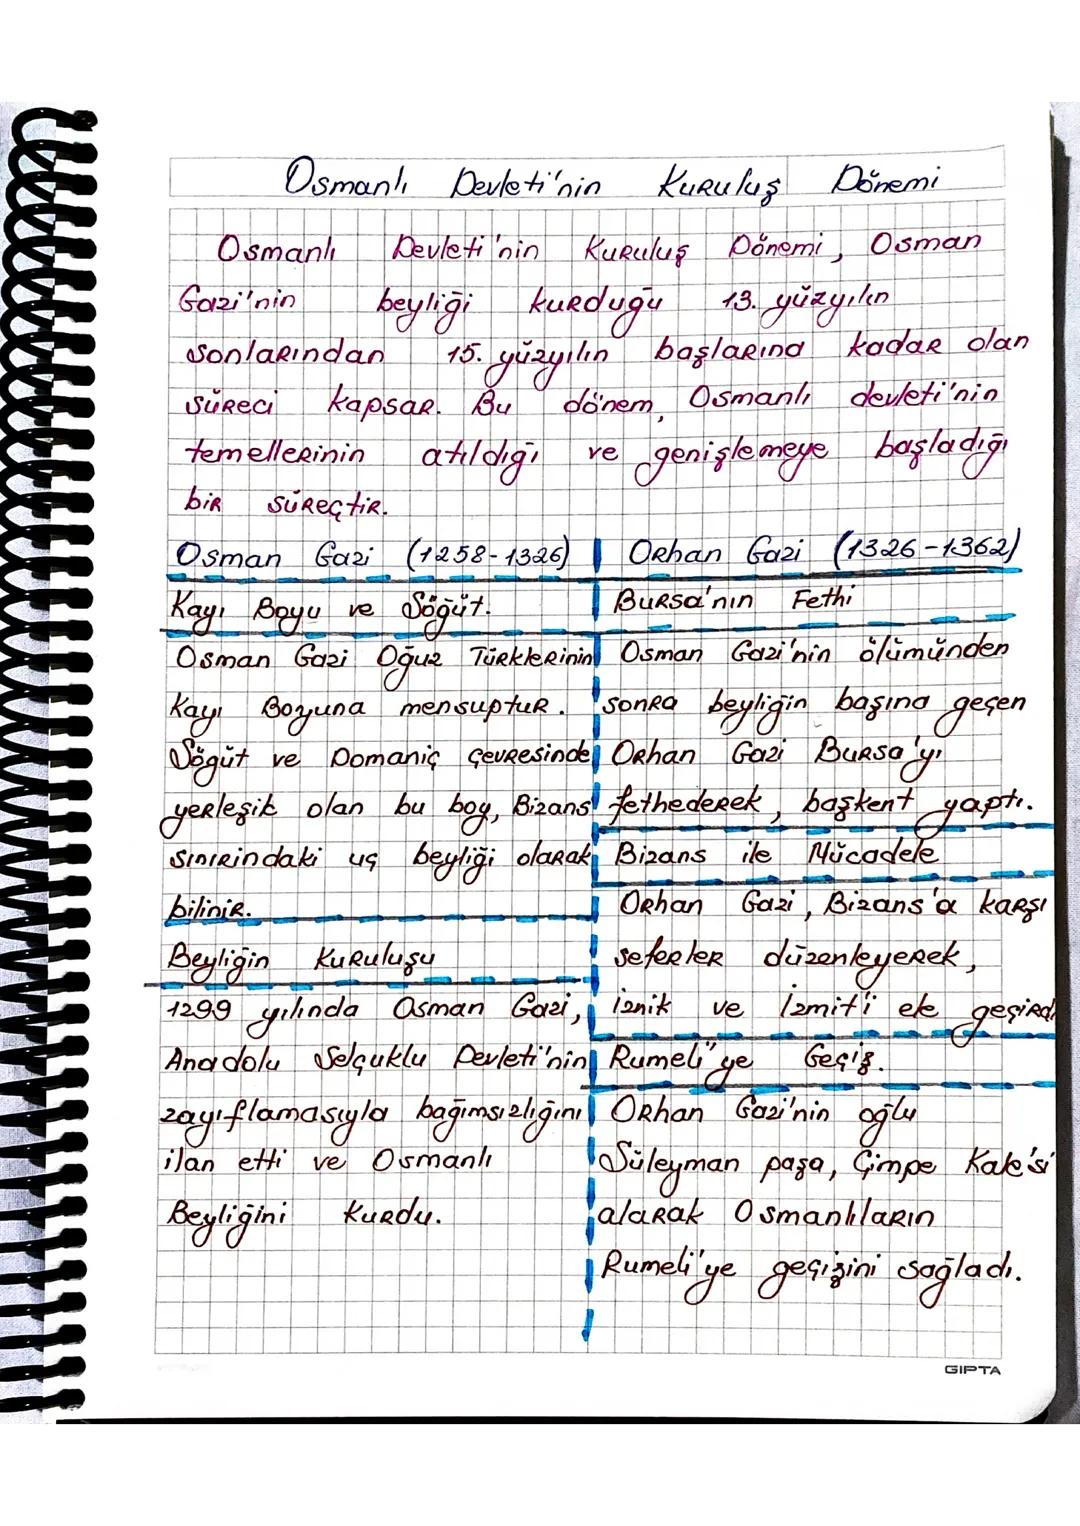 Osmanlı Devleti'nin Kuruluş Dönemi
Osmanlı Devleti'nin Kuruluş Dönemi, Osman
Gazi'nin beyliği kurduğu 13. yüzyılın
sonlarından 15. yüzyılın başlarına kadar olan
süreci kapsar. Bu dönem, Osmanlı devleti'nin
temellerinin atıldığı ve genişlemeye başladığı
bir süreçtir.
Osman Gazi (1258-1326)
Kayı Boyu ve Söğüt.
Osman Gazi Oğuz Türklerinin
Kayı Boyuna mensuptur.
Söğüt ve Domaniç çevresinde
yerleşik olan bu boy, Bizans
sınırindaki uç beyliği olarak
bilinir.
Beyliğin Kuruluşu
1299 yılında Osman Gazi,
Anadolu Selçuklu Devleti'nin
zayıflamasıyla bağımsızlığını
ilan etti ve Osmanlı
Beyliğini kurdu.
Orhan Gazi (1326-1362)
Bursa'nın Fethi
Osman Gazi'nin ölümünden
sonra beyliğin başına geçen
Orhan Gazi Bursa'yı
fethederek, başkent yaptı.
Bizans ile Mücadele
Orhan Gazi, Bizans'a karşı
seferler düzenleyerek,
İznik ve İzmit'i ele geçirdi
Rumeli''ye Geçiş.
Orhan Gazi'nin oğlu
Süleyman paşa, Çimpe Kale'si
alarak Osmanlıların
Rumeli'ye geçişini sağladı.
GIPTA